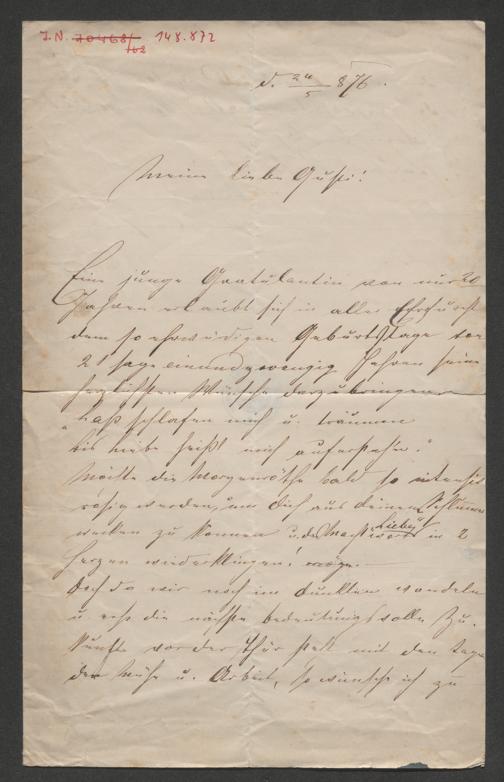 J.N. 70468/162 148.872
d. 24/5 876.
Meine liebe Gusti!
Eine junge Gratulantin von nur 20
Jahren erlaubt sich in aller Ehrfurcht
dem so ehrwürdigen Geburtstage von
21 sage einundzwanzig Jahren seine
herzlichsten Wünsche darzubringen
"Laß schlafen mich u. träumen
bis Liebe heißt mich aufersteh'n."
Möchte die Morgenröthe bald so intensiv
rosig werden, um dich aus deinem Schlummer
wecken zu können u. das Machtwort Liebe in 2
Herzen wiederklingen!
Doch da wir noch im dunklen wandeln
u. erst die nächste bedeutungsvolle Zu-
kunft vor der Thür steht mit den Tagen
der Mühe u. Arbeit, so wünsche ich zu